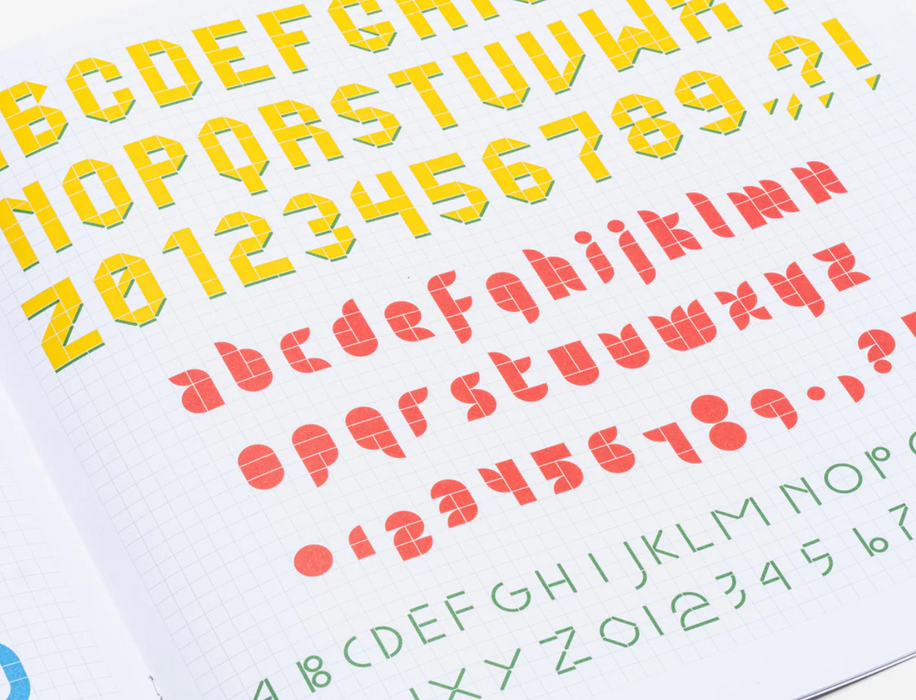 BCDEFGH
NOPQRSTUVWXY
Z0123456789.,?!
abcdefghijklmn
opqrstuvwxyz
0123456789.,?
ABCDEFGHIJKLMNOP
XYZ0123456